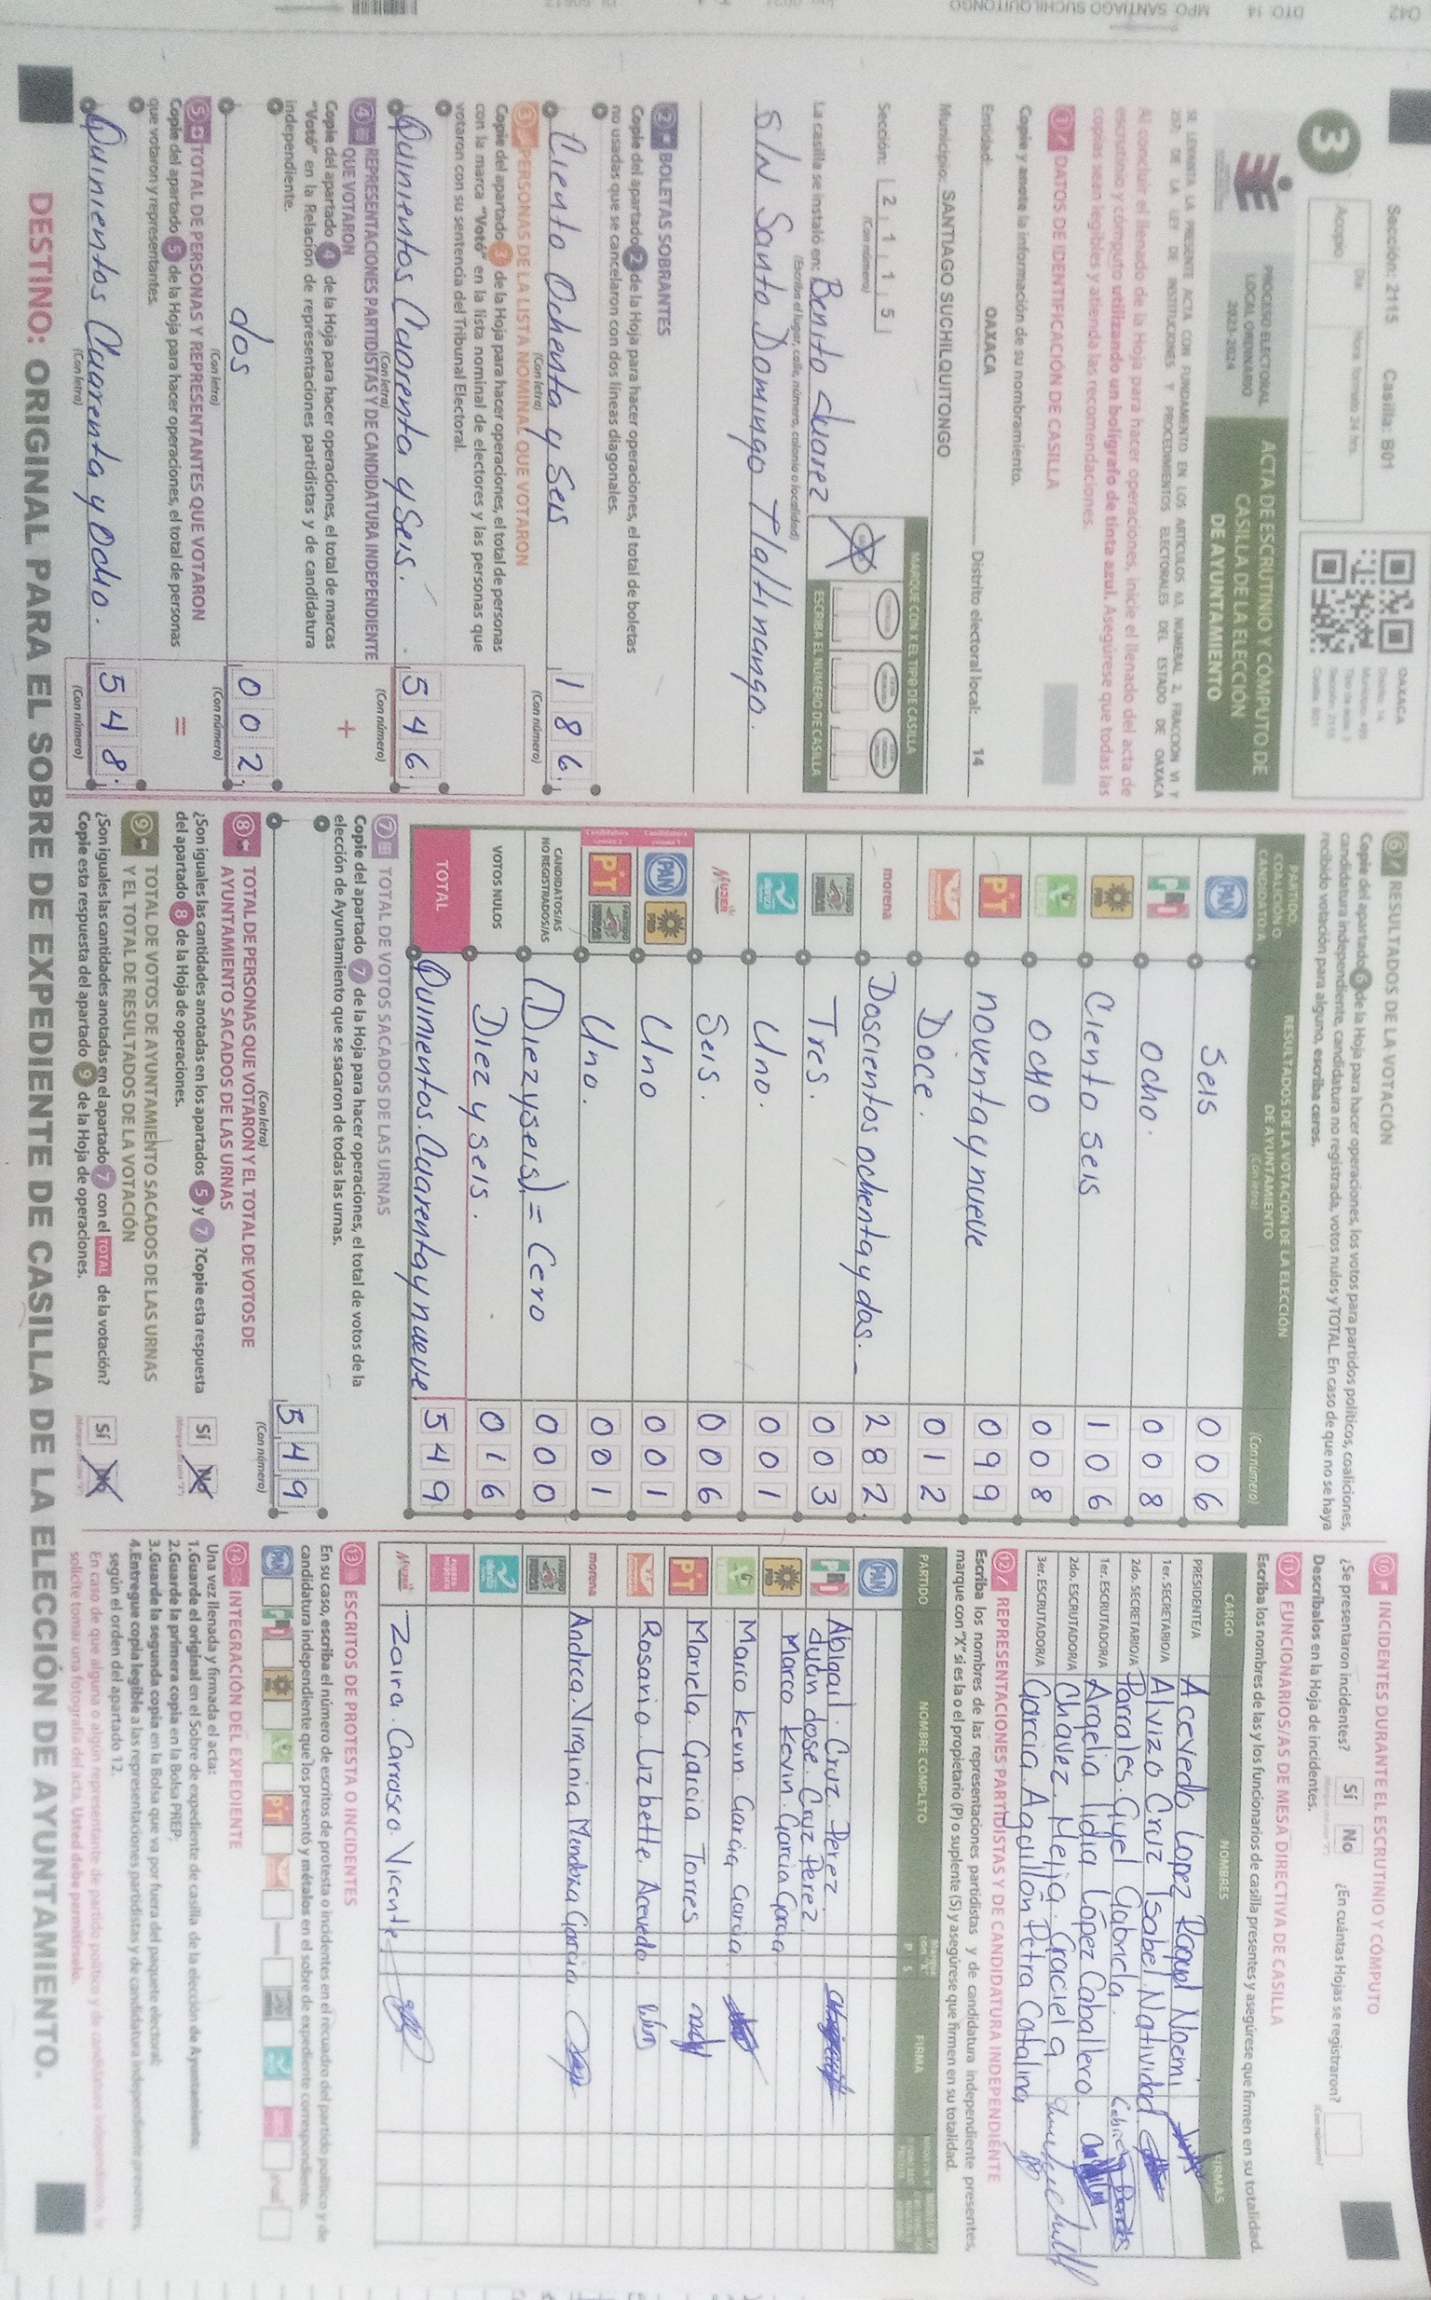 Sección: 2115 Casilla: B01
3
Acopio
PROCESO ELECTORAL
LOCAL ORDINARIO
2023-2024
ACTA DE ESCRUTINIO Y CÓMPUTO DE
CASILLA DE LA ELECCIÓN
DE AYUNTAMIENTO
SE LEVANTA LA PRESENTE ACTA CON FUNDAMENTO EN LOS ARTÍCULOS 63, NUMERAL 2, FRACCIÓN VI Y
257; DE LA LEY DE INSTITUCIONES Y PROCEDIMIENTOS ELECTORALES DEL ESTADO DE OAXACA
Al concluir el llenado de la Hoja para hacer operaciones, inicie el llenado del acta de
escrutinio y cómputo utilizando un bolígrafo de tinta azul. Asegúrese que todas las
copias sean legibles y atienda las recomendaciones.
1 DATOS DE IDENTIFICACIÓN DE CASILLA
Copie y anote la información de su nombramiento.
Entidad: OAXACA Distrito electoral local: 14
Municipio: SANTIAGO SUCHILQUITONGO
Sección: 2 1 1 5
(Con número)
MARQUE CON X EL TIPO DE CASILLA
ESCRIBA EL NÚMERO DE CASILLA
La casilla se instaló en: Benito Juarez
(Escriba el lugar, calle, número, colonia o localidad)
S/N Santo Domingo Tlaltinango.
2 BOLETAS SOBRANTES
Copie del apartado 2 de la Hoja para hacer operaciones, el total de boletas
no usadas que se cancelaron con dos líneas diagonales.
Ciento Ochenta y Seis 1 8 6
(Con letra) (Con número)
3 PERSONAS DE LA LISTA NOMINAL QUE VOTARON
Copie del apartado 3 de la Hoja para hacer operaciones, el total de personas
con la marca "Votó" en la lista nominal de electores y las personas que
votaron con su sentencia del Tribunal Electoral.
Quinientos Cuarenta y Seis. 5 4 6
(Con letra) (Con número)
4 REPRESENTACIONES PARTIDISTAS Y DE CANDIDATURA INDEPENDIENTE
QUE VOTARON +
Copie del apartado 4 de la Hoja para hacer operaciones, el total de marcas
"Votó" en la Relación de representaciones partidistas y de candidatura
independiente.
dos 0 0 2
(Con letra) (Con número)
5 TOTAL DE PERSONAS Y REPRESENTANTES QUE VOTARON =
Copie del apartado 5 de la Hoja para hacer operaciones, el total de personas
que votaron y representantes.
Quinientos Cuarenta y Ocho. 5 4 8
(Con letra) (Con número)
6 RESULTADOS DE LA VOTACIÓN
Copie del apartado 6 de la Hoja para hacer operaciones, los votos para partidos políticos, coaliciones,
candidatura independiente, candidatura no registrada, votos nulos y TOTAL. En caso de que no se haya
recibido votación para alguno, escriba ceros.
PARTIDO,
COALICIÓN O
CANDIDATO/A
RESULTADOS DE LA VOTACIÓN DE LA ELECCIÓN
DE AYUNTAMIENTO
(Con letra) (Con número)
PAN Seis 0 0 6
PRI Ocho. 0 0 8
PRD Ciento seis 1 0 6
OCHO 0 0 8
PT noventa y nueve 0 9 9
Doce. 0 1 2
morena Doscientos ochenta y dos. 2 8 2
Tres. 0 0 3
Uno. 0 0 1
MUJER Seis. 0 0 6
PAN PRD Uno 0 0 1
PT Uno. 0 0 1
CANDIDATOS/AS
NO REGISTRADOS/AS (Diez y seis) = Cero 0 0 0
VOTOS NULOS Diez y seis. 0 1 6
TOTAL Quinientos. Cuarenta y nueve 5 4 9
7 TOTAL DE VOTOS SACADOS DE LAS URNAS
Copie del apartado 7 de la Hoja para hacer operaciones, el total de votos de la
elección de Ayuntamiento que se sacaron de todas las urnas.
5 4 9
(Con letra) (Con número)
8 TOTAL DE PERSONAS QUE VOTARON Y EL TOTAL DE VOTOS DE
AYUNTAMIENTO SACADOS DE LAS URNAS
¿Son iguales las cantidades anotadas en los apartados 5 y 7 ?Copie esta respuesta
del apartado 8 de la Hoja de operaciones. Sí No
9 TOTAL DE VOTOS DE AYUNTAMIENTO SACADOS DE LAS URNAS
Y EL TOTAL DE RESULTADOS DE LA VOTACIÓN
¿Son iguales las cantidades anotadas en el apartado 7 con el TOTAL de la votación?
Copie esta respuesta del apartado 9 de la Hoja de operaciones. Sí No
10 INCIDENTES DURANTE EL ESCRUTINIO Y CÓMPUTO
¿Se presentaron incidentes? Sí No ¿En cuántas Hojas se registraron?
Descríbalos en la Hoja de incidentes.
11 FUNCIONARIOS/AS DE MESA DIRECTIVA DE CASILLA
Escriba los nombres de las y los funcionarios de casilla presentes y asegúrese que firmen en su totalidad.
CARGO NOMBRES FIRMAS
PRESIDENTE/A Acevedo Lopez Raquel Noemi
1er. SECRETARIO/A Alvizo Cruz Isabel Natividad
2do. SECRETARIO/A Parrales. Gyel Gabriela.
1er. ESCRUTADOR/A Argelia lidia López Caballero
2do. ESCRUTADOR/A Chavez. Mejia. Graciela
3er. ESCRUTADOR/A Garcia. Aguillón Petra Catalina
12 REPRESENTACIONES PARTIDISTAS Y DE CANDIDATURA INDEPENDIENTE
Escriba los nombres de las representaciones partidistas y de candidatura independiente presentes,
marque con "X" si es la o el propietario (P) o suplente (S) y asegúrese que firmen en su totalidad.
PARTIDO NOMBRE COMPLETO P S FIRMA
PAN
PRI Abigail. Cruz. Perez.
Juan Jose. Cruz Perez
PRD Marco Kevin. Garcia Garcia
Marco Kevin. Garcia Garcia
PT Mariela. Garcia Torres
Rosario. Lizbette. Acevedo
morena Andrea. Virginia Mendoza Garcia
MUJER Zaira. Carrasco. Vicente
13 ESCRITOS DE PROTESTA O INCIDENTES
En su caso, escriba el número de escritos de protesta o incidentes en el recuadro del partido político y de
candidatura independiente que los presentó y métalos en el sobre de expediente correspondiente.
14 INTEGRACIÓN DEL EXPEDIENTE
Una vez llenada y firmada el acta:
1.Guarde el original en el Sobre de expediente de casilla de la elección de Ayuntamiento;
2.Guarde la primera copia en la Bolsa PREP;
3.Guarde la segunda copia en la Bolsa que va por fuera del paquete electoral;
4.Entregue copia legible a las representaciones partidistas y de candidatura independiente presentes,
según el orden del apartado 12.
En caso de que alguna o algún representante de partido político y de candidatura independiente le
solicite tomar una fotografía del acta, Usted debe permitírselo.
DESTINO: ORIGINAL PARA EL SOBRE DE EXPEDIENTE DE CASILLA DE LA ELECCIÓN DE AYUNTAMIENTO.